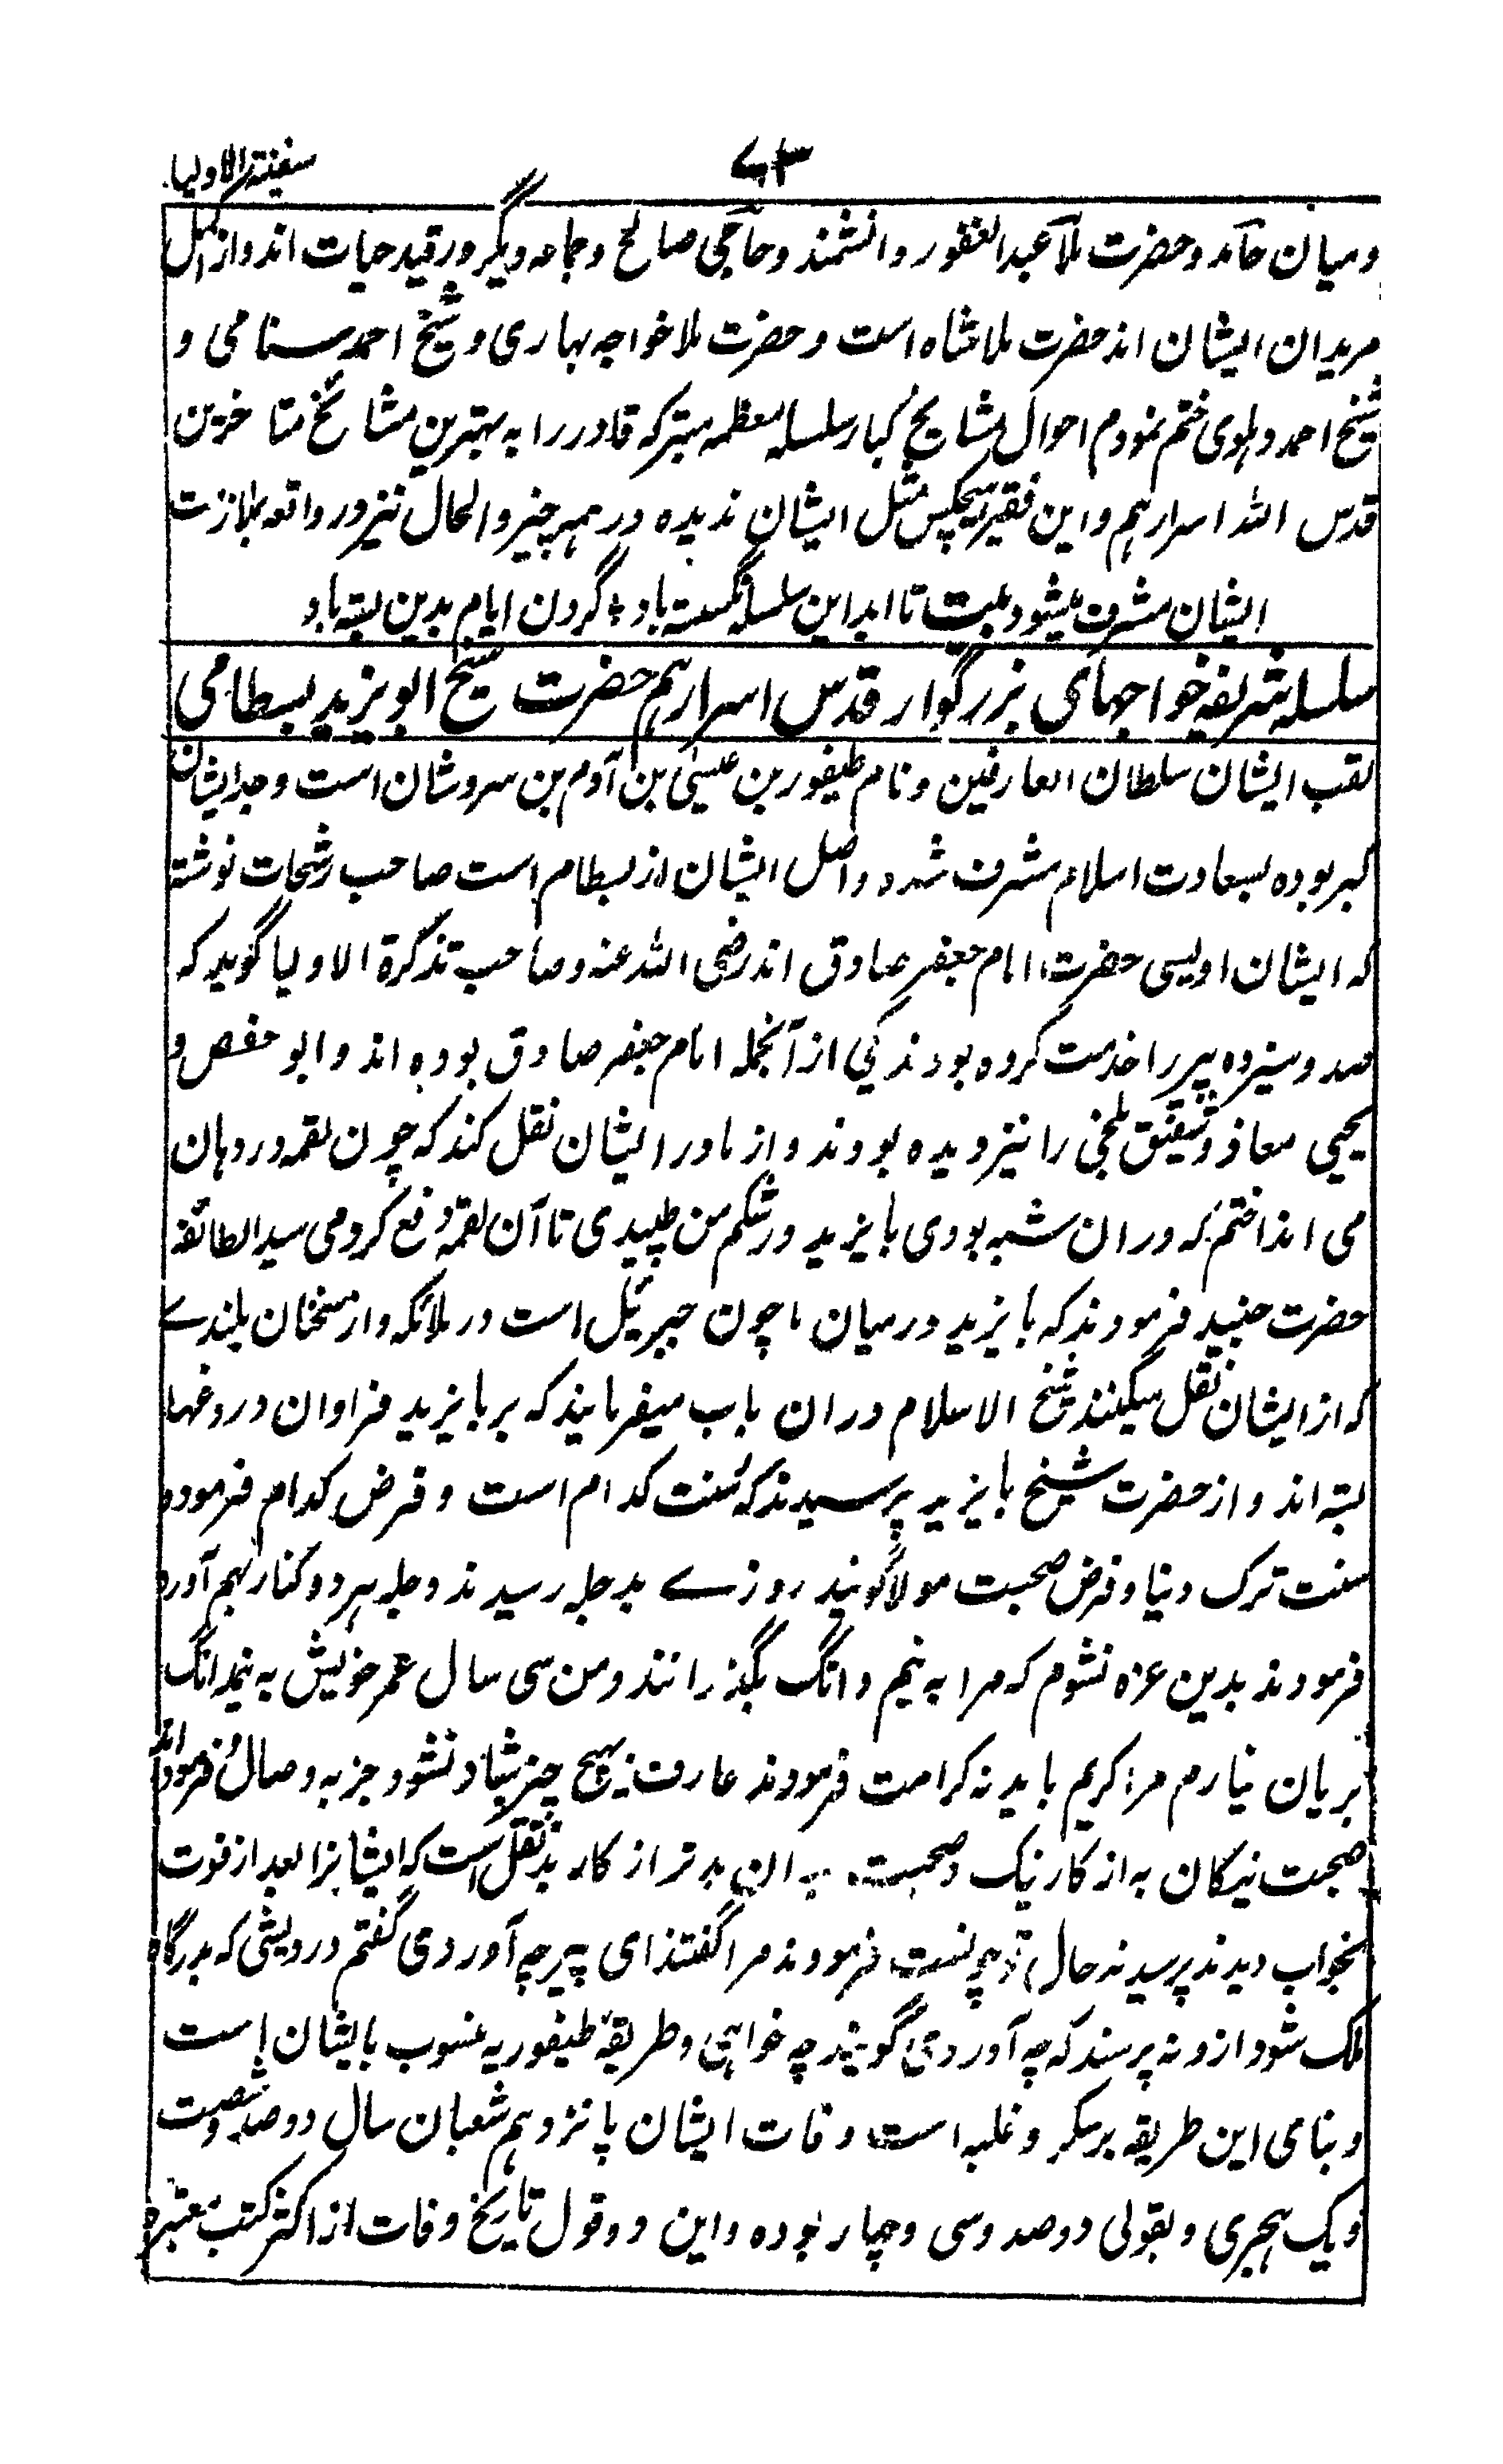 ۷۳ سفینة الاولیا
و میان حامد و حضرت ملا عبد الغفور دانشمند و حاجی صالح و جماعه دیگر در قید حیات اند و از اکمل
مریدان ایشان اند حضرت ملا شاه است و حضرت ملا خواجه بهاری و شیخ احمد سنامی و
شیخ احمد دهلوی ختم نمودم احوال مشایخ کبار سلسله معظمه متبرکه قادر را به بهترین مشائخ متاخرین
قدس الله اسرارهم و این فقیر هیچکس مثل ایشان ندیده در همه چیز و الحال نیز در واقعه بملازمت
ایشان مشرف میشود بیت تا ابد این سلسله نگسسته باد ؛ گردن ایام بدین بسته باد
سلسله شریفه خواجهای بزرگوار قدس اسرارهم حضرت شیخ ابو یزید بسطامی
لقب ایشان سلطان العارفین و نام طیفور بن عیسی بن آدم بن سروشان است و جد ایشان
گبر بوده بسعادت اسلام مشرف شده و اصل ایشان از بسطام است صاحب رشحات نوشته
که ایشان اویسی حضرت امام جعفر صادق اند رضی الله عنه و صاحب تذکرة الاولیا گوید که
صد و سیزده پیر را خدمت کرده بودند یکی از آنجمله امام جعفر صادق بوده اند و ابو حفص و
یحیی معاذ و شقیق بلخی را نیز دیده بودند و از مادر ایشان نقل کنند که چون لقمه در دهان
می انداختم که دران شبه بودی بایزید در شکم من طپیدی تا آن لقمه دفع کردمی سید الطائفه
حضرت جنید فرمودند که بایزید درمیان ما چون جبرئیل است در ملائکه و از سخنان بلندے
که از ایشان نقل میکنند شیخ الاسلام دران باب میفرمایند که بر بایزید فراوان دروغها
بسته اند و از حضرت شیخ بایزید پرسیدند که سنت کدام است و فرض کدام فرموده
سنت ترک دنیا و فرض صحبت مولا گویند روزے بدجله رسیدند دجله هر دو کنار بهم آورد
فرمودند بدین غره نشوم که مرا به نیم دانگ بگذرانند و من سی سال عمر خویش به نیمدانگ
بریان نیارم مرا کریم باید نه کرامت فرمودند عارف بهیچ چیز شاد نشود جز به وصال و فرموده اند
صحبت نیکان به از کار نیک و صحبت بدان بدتر از کار بد نقل است که ایشانرا بعد از فوت
بخواب دیدند پرسیدند حال تو چیست فرمودند مرا گفتند ای پیر چه آوردی گفتم درویشی که بدرگاه
ملک شود ازو نه پرسند که چه آوردی گویند چه خواهی و طریقه طیفوریه منسوب بایشان است
و بنای این طریقه بر سکر و غلبه است وفات ایشان پانزدهم شعبان سال دو صد و شصت
و یک هجری و بقولی دو صد و سی و چهار بوده و این دو قول تاریخ وفات از اکثر کتب معتبره